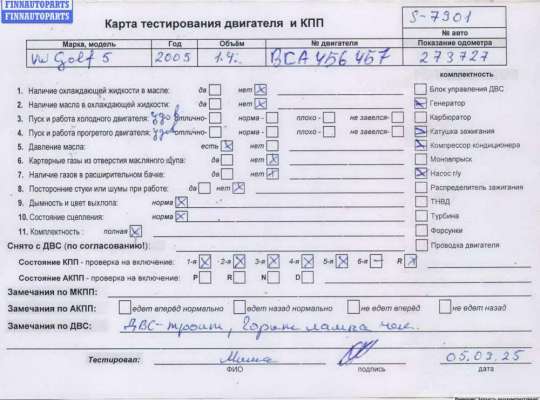 FINNAUTOPARTS
FINNAUTOPARTS
Карта тестирования двигателя и КПП
S-7301
№ авто
Марка, модель Год Объём № двигателя Показание одометра
VW Golf 5 2005 1.4i BCA 456 457 273727
комплектность
1. Наличие охлаждающей жидкости в масле: да нет
Блок управления ДВС
2. Наличие масла в охлаждающей жидкости: да нет
Генератор
3. Пуск и работа холодного двигателя: удов отлично- норма - плохо - не завелся-
Карбюратор
4. Пуск и работа прогретого двигателя: удов отлично- норма - плохо - не завелся-
Катушка зажигания
5. Давление масла: есть нет
Компрессор кондиционера
6. Картерные газы из отверстия масляного щупа: да нет
Моновпрыск
7. Наличие газов в расширительном бачке: да нет
Насос г/у
8. Посторонние стуки или шумы при работе: да нет
Распределитель зажигания
9. Дымность и цвет выхлопа: норма
ТНВД
10. Состояние сцепления: норма
Турбина
11. Комплектность : полная
Форсунки
Снято с ДВС (по согласованию!):
Проводка двигателя
Состояние КПП - проверка на включение: 1-я 2-я 3-я 4-я 5-я 6-я R
Состояние АКПП - проверка на включение: P R N D
Замечания по МКПП:
Замечания по АКПП: едет вперёд нормально едет назад нормально не едет вперёд не едет назад
Замечания по ДВС: ДВС-троит, Горит лампа чек.
Тестировал: Миша 05.03.25
ФИО подпись дата